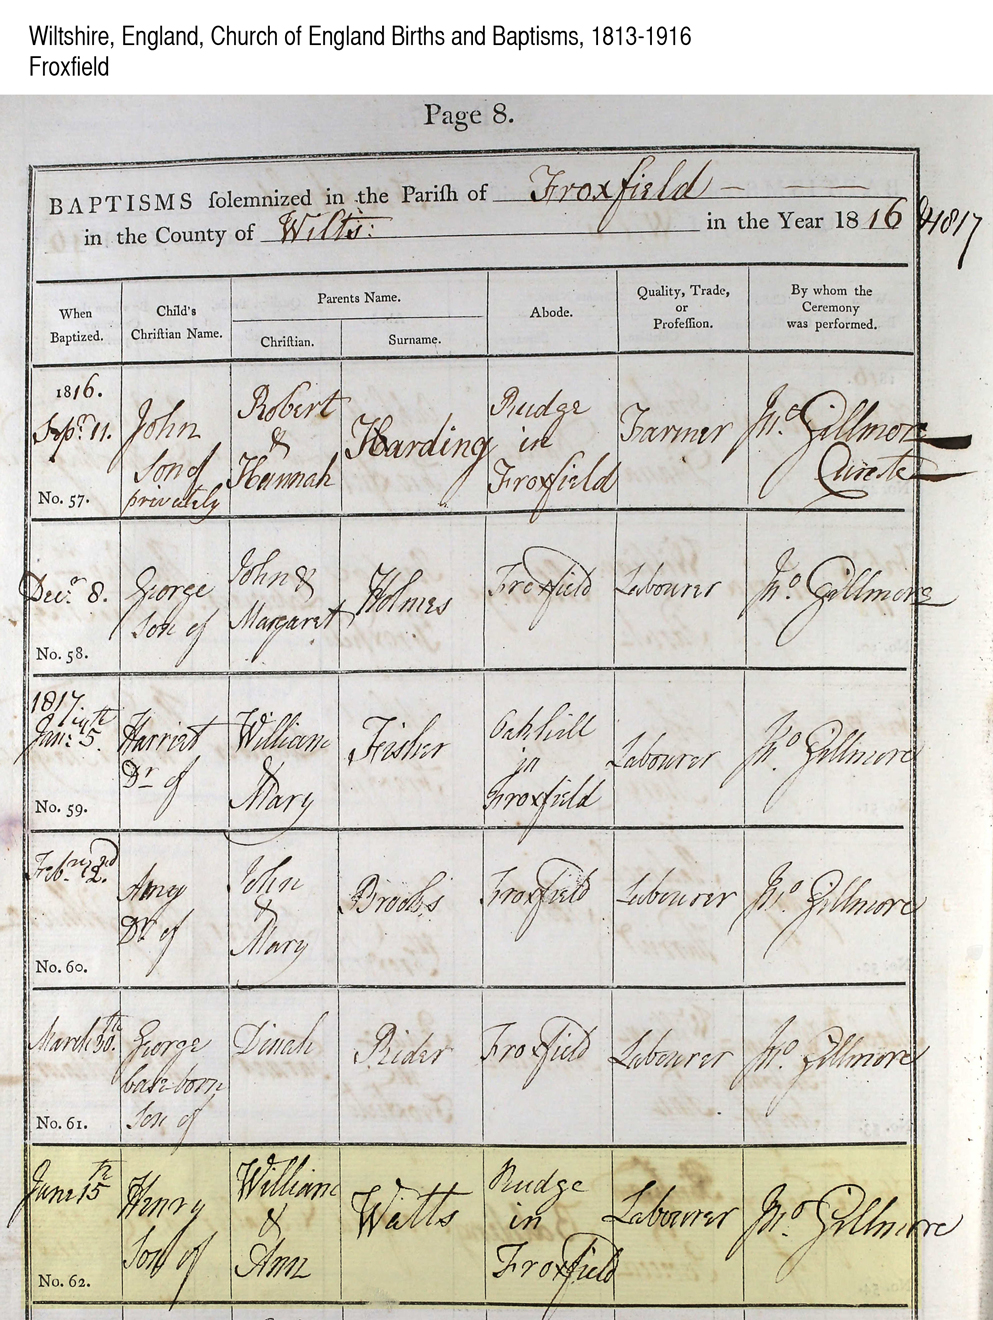 Wiltshire, England, Church of England Births and Baptisms, 1813-1916
Froxfield
Page 8.
BAPTISMS solemnized in the Parish of Froxfield
in the County of Wilts: in the Year 1816 & 1817
When Baptized.
Child's Christian Name.
Parents Name.
Christian.
Surname.
Abode.
Quality, Trade, or Profession.
By whom the Ceremony was performed.
1816.
Sepr. 11.
No. 57.
John
son of
privately
Robert
&
Hannah
Harding
Rudge
in
Froxfield
Farmer
Jno. Gillmore
Curate
Decr. 8.
No. 58.
George
Son of
John &
Margaret
Holmes
Froxfield
Labourer
Jno. Gillmore
1817
Jany. 5th
No. 59.
Harriet
Dr of
William
&
Mary
Fisher
Oakhill
in
Froxfield
Labourer
Jno. Gillmore
Febry. 2nd
No. 60.
Amy
Dr of
John
&
Mary
Brooks
Froxfield
Labourer
Jno. Gillmore
March 30th.
No. 61.
George
base born
Son of
Dinah
Rider
Froxfield
Labourer
Jno. Gillmore
June 15th
No. 62.
Henry
Son of
William
&
Ann
Watts
Rudge
in
Froxfield
Labourer
Jno. Gillmore